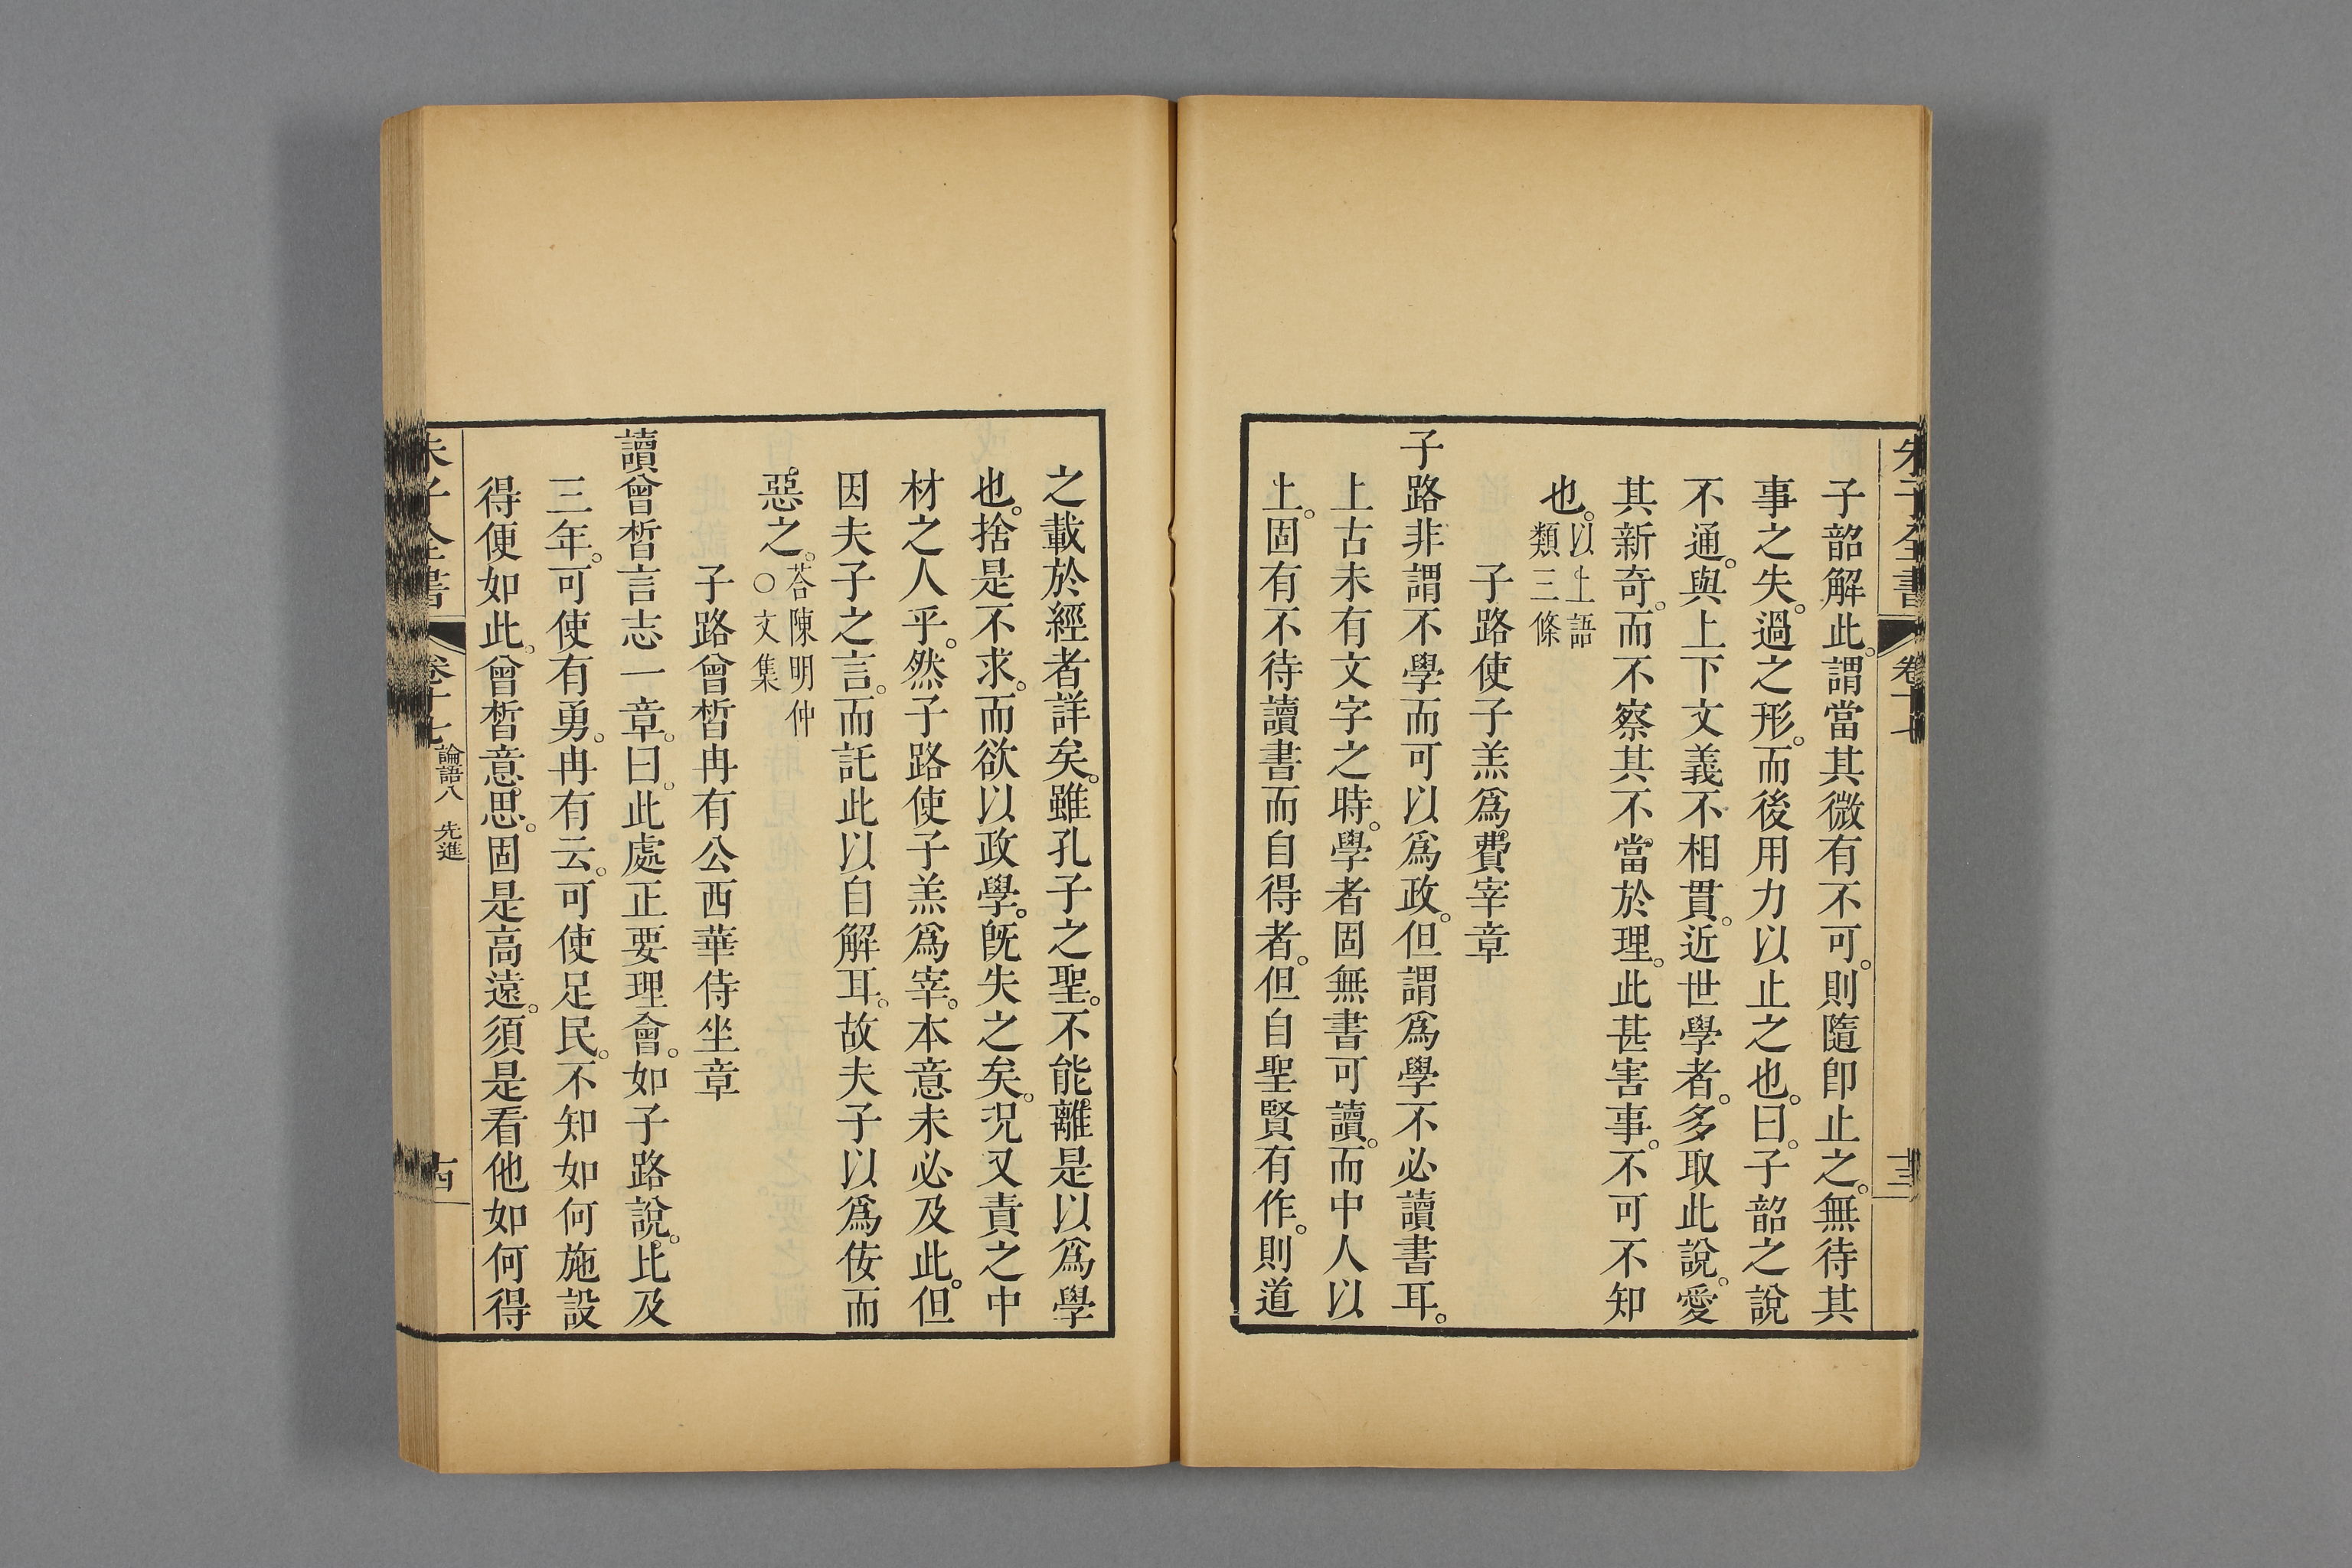 朱子全書 卷十七 十三
子韶解此。謂當其微有不可。則隨卽止之。無待其
事之失。過之形。而後用力以止之也。曰。子韶之說
不通。與上下文義不相貫。近世學者。多取此說。愛
其新奇。而不察其不當於理。此甚害事。不可不知
也。以上語類三條
子路使子羔爲費宰章
子路非謂不學而可以爲政。但謂爲學不必讀書耳。
上古未有文字之時。學者固無書可讀。而中人以
上。固有不待讀書而自得者。但自聖賢有作。則道
之載於經者詳矣。雖孔子之聖。不能離是以爲學
也。捨是不求。而欲以政學。旣失之矣。况又責之中
材之人乎。然子路使子羔爲宰。本意未必及此。但
因夫子之言。而託此以自解耳。故夫子以爲佞而
惡之。荅陳明仲○文集
子路曾晳冉有公西華侍坐章
讀曾晳言志一章。曰。此處正要理會。如子路說。比及
三年。可使有勇。冉有云。可使足民。不知如何施設
得便如此。曾晳意思。固是高遠。須是看他如何得
朱子全書 卷十七 論語八 先進 十四